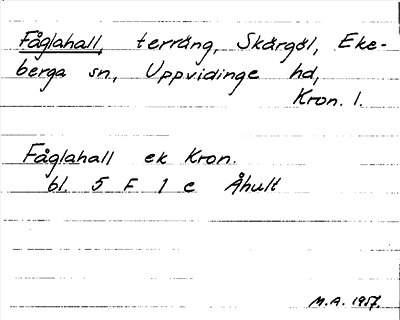 Fåglahall, terräng, Skärgöl, Eke-
berga sn, Uppvidinge hd,
Kron. l.
Fåglahall ek Kron.
bl. 5 F 1 c Åhult
M.A. 1957.